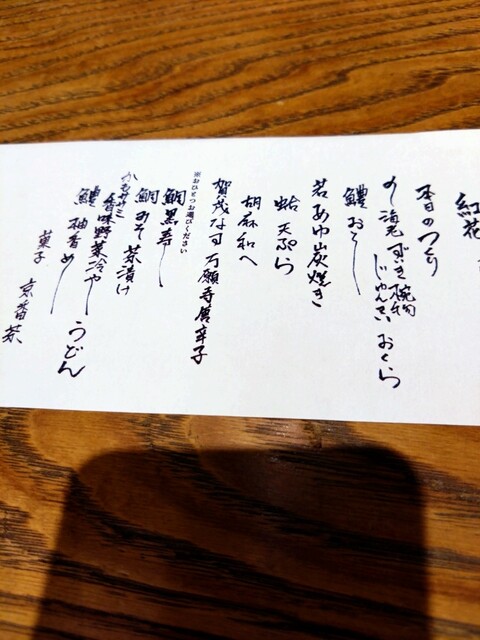 紅花
本日のつくり
の し海老 ずいき 椀物
じゅんさい おくら
鱧 おとし
若あゆ山炭焼き
蛤 天ぷら
胡麻和へ
賀茂なす 万願寺唐辛子
※おひとつお選びください
鯛 寿し
鯛みそ茶漬け
香味野菜冷やしうどん
鱧 柚香めし
菓子 京番茶